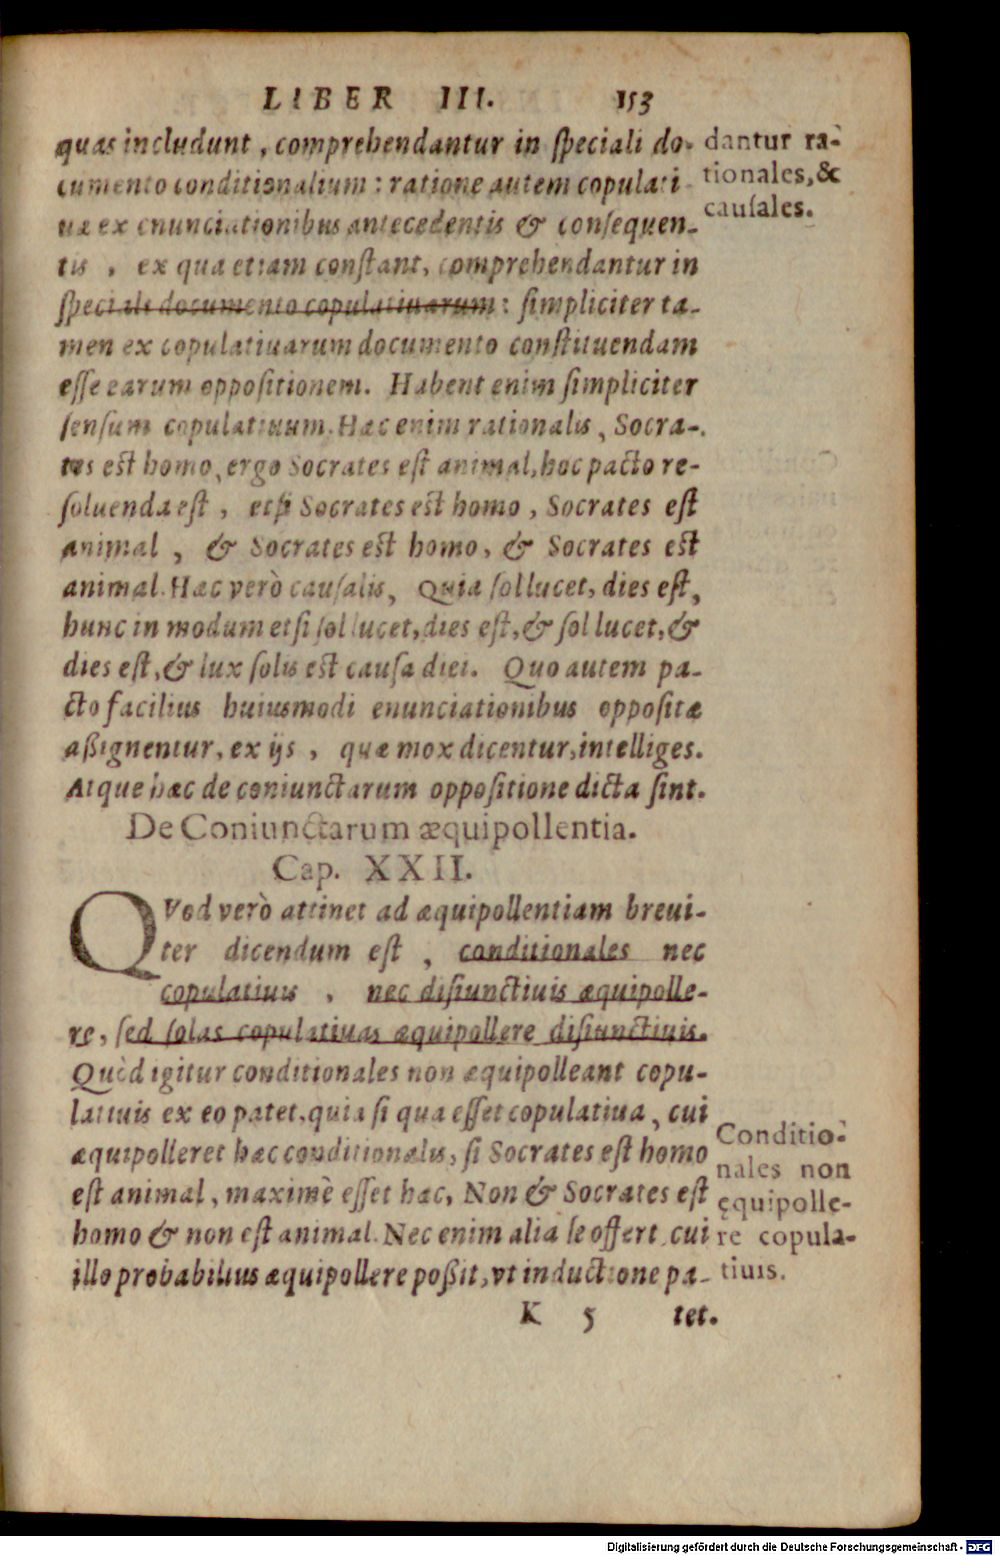 LIBER III. 153
quas includunt, comprehendantur in speciali do-
cumento conditionalium: ratione autem copulati
uæ ex enunciationibus antecedentis & consequen-
tis, ex qua etiam constant, comprehendantur in
speciali documento copulatiuarum: simpliciter ta-
men ex copulatiuarum documento constituendam
esse earum oppositionem. Habent enim simpliciter
sensum copulatiuum. Hæc enim rationalis, Socra-
tes est homo, ergo Socrates est animal, hoc pacto re-
soluenda est, etsi Socrates est homo, Socrates est
animal, & Socrates est homo, & Socrates est
animal. Hæc verò causalis, Quia sol lucet, dies est,
hunc in modum etsi sol lucet, dies est, & sol lucet, &
dies est, & lux solis est causa diei. Quo autem pa-
cto facilius huiusmodi enunciationibus oppositæ
aßignentur, ex ijs, quæ mox dicentur, intelliges.
Atque hæc de coniunctarum oppositione dicta sint.
dantur ra-
tionales, &
causales.
De Coniunctarum æquipollentia.
Cap. XXII.
QVod verò attinet ad æquipollentiam breui-
ter dicendum est, conditionales nec
copulatiuis, nec disiunctiuis æquipolle-
re, sed solas copulatiuas æquipollere disiunctiuis.
Quòd igitur conditionales non æquipolleant copu-
latiuis ex eo patet, quia si qua esset copulatiua, cui
æquipolleret hæc conditionalis, si Socrates est homo
est animal, maximè esset hæc, Non & Socrates est
homo & non est animal. Nec enim alia se offert, cui
illo probabilius æquipollere poßit, vt inductione pa-
Conditio-
nales non
ęquipolle-
re copula-
tiuis.
K 5 tet.
Digitalisierung gefördert durch die Deutsche Forschungsgemeinschaft - DFG